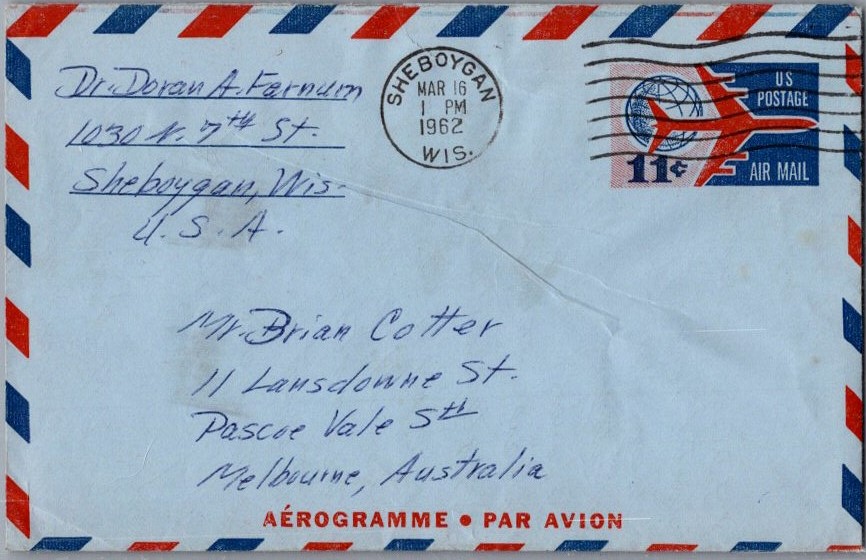 Dr. Doran A. Farnum
1030 N. 7th St.
Sheboygan, Wis.
U. S. A.
SHEBOYGAN
MAR 16
1 PM
1962
WIS.
US
POSTAGE
11¢
AIR MAIL
Mr. Brian Cotter
11 Lansdowne St.
Pascoe Vale Sth
Melbourne, Australia
AÉROGRAMME • PAR AVION